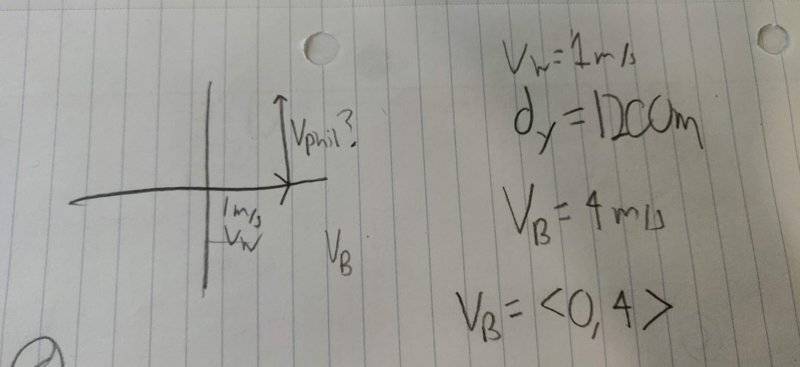 Vphil?
1m/s
Vw
VB
Vw=1m/s
dy=1200m
VB=4m/s
VB=<0,4>